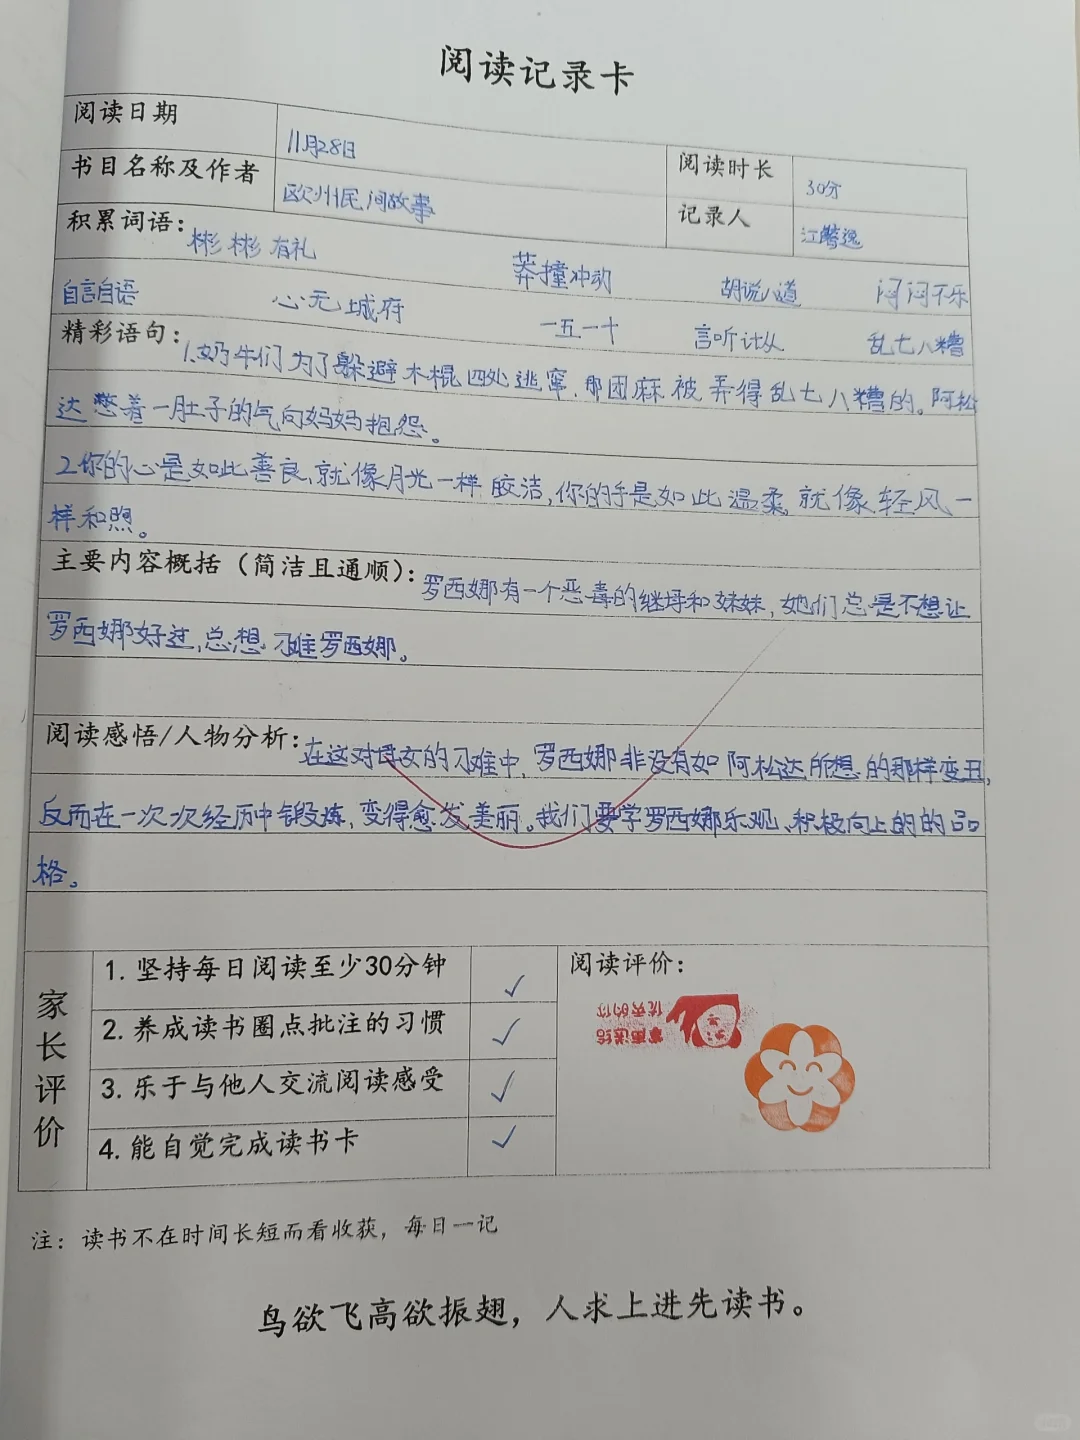 阅读记录卡
阅读日期 11月28日 阅读时长 30分
书目名称及作者 欧州民间故事 记录人 江 逸
积累词语: 彬彬有礼 莽撞冲动 胡说八道 闷闷不乐
自言自语 心无城府 一五一十 言听计从 乱七八糟
精彩语句: 1.奶牛们为了躲避木棍四处逃窜,那团麻被弄得乱七八糟的。阿松
达憋着一肚子的气向妈妈抱怨。
2.你的心是如此善良,就像月光一样皎洁,你的手是如此温柔,就像轻风一
样和煦。
主要内容概括(简洁且通顺): 罗西娜有一个恶毒的继母和妹妹,她们总是不想让
罗西娜好过,总想刁难罗西娜。
阅读感悟/人物分析: 在这对母女的刁难中,罗西娜非没有如阿松达所想的那样变丑,
反而在一次次经历中锻炼,变得愈发美丽。我们要学罗西娜乐观、积极向上的的品
格。
家长评价
1. 坚持每日阅读至少30分钟 ✓
2. 养成读书圈点批注的习惯 ✓
3. 乐于与他人交流阅读感受 ✓
4. 能自觉完成读书卡 ✓
阅读评价:
优秀的你
送给
注: 读书不在时间长短而看收获, 每日一记
鸟欲飞高欲振翅, 人求上进先读书。